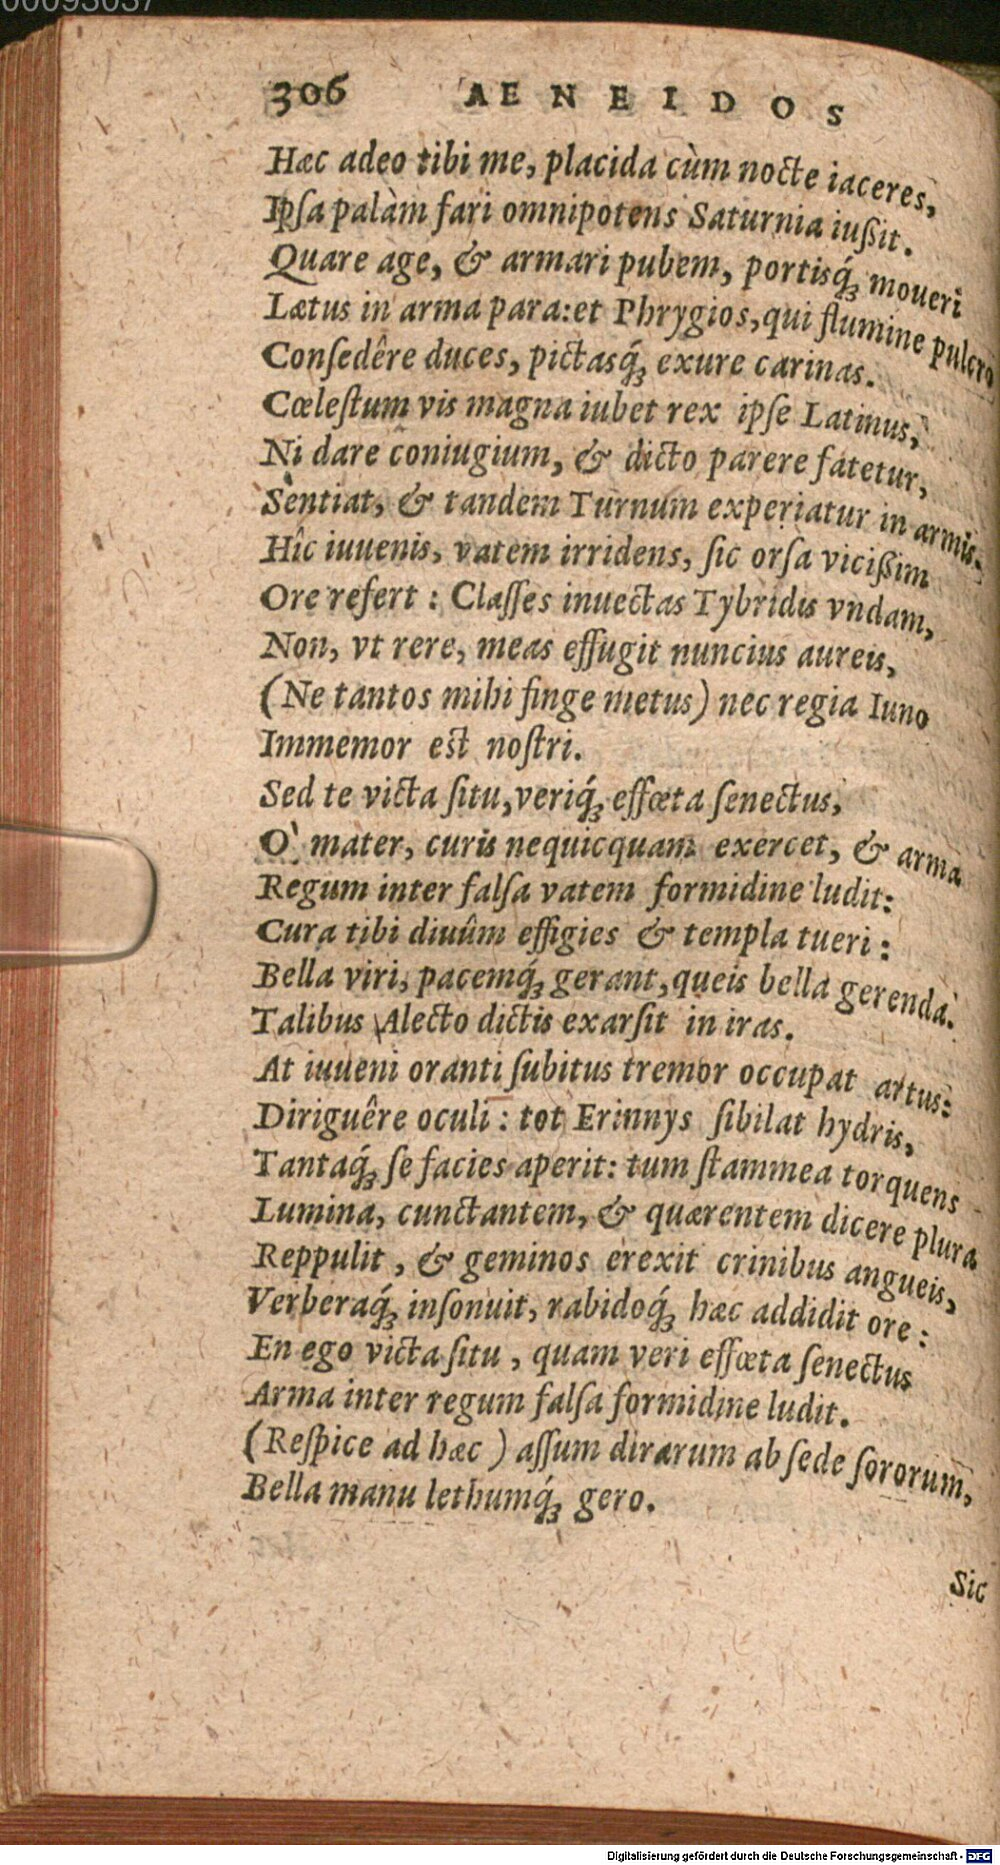 00093037
306 AENEIDOS
Hæc adeo tibi me, placida cùm nocte iaceres,
Ipſa palàm fari omnipotens Saturnia iußit.
Quare age, & armari pubem, portisq́ꝫ moueri
Lætus in arma para: et Phrygios, qui flumine pulcro
Conſedêre duces, pictasq́ꝫ exure carinas.
Cœleſtum vis magna iubet rex ipſe Latinus,
Ni dare coniugium, & dicto parere fatetur,
Sentiat, & tandem Turnum experiatur in armis.
Hîc iuuenis, vatem irridens, ſic orſa vicißim
Ore refert: Claſſes inuectas Tybridis vndam,
Non, vt rere, meas effugit nuncius aureis,
(Ne tantos mihi finge metus) nec regia Iuno
Immemor est noſtri.
Sed te victa ſitu, veriq́ꝫ effœta ſenectus,
O' mater, curis nequicquam exercet, & arma
Regum inter falſa vatem formidine ludit:
Cura tibi diuûm effigies & templa tueri:
Bella viri, pacemq́ꝫ gerant, queis bella gerenda.
Talibus Alecto dictis exarſit in iras.
At iuueni oranti ſubitus tremor occupat artus:
Diriguêre oculi: tot Erinnys ſibilat hydris,
Tantaq́ꝫ ſe facies aperit: tum flammea torquens
Lumina, cunctantem, & quærentem dicere plura
Reppulit, & geminos erexit crinibus angueis,
Verberaq́ꝫ inſonuit, rabidoq́ꝫ hæc addidit ore:
En ego victa ſitu, quam veri effœta ſenectus
Arma inter regum falſa formidine ludit.
(Reſpice ad hæc) aſſum dirarum ab ſede ſororum,
Bella manu lethumq́ꝫ gero.
Sic
Digitalisierung gefördert durch die Deutsche Forschungsgemeinschaft - DFG